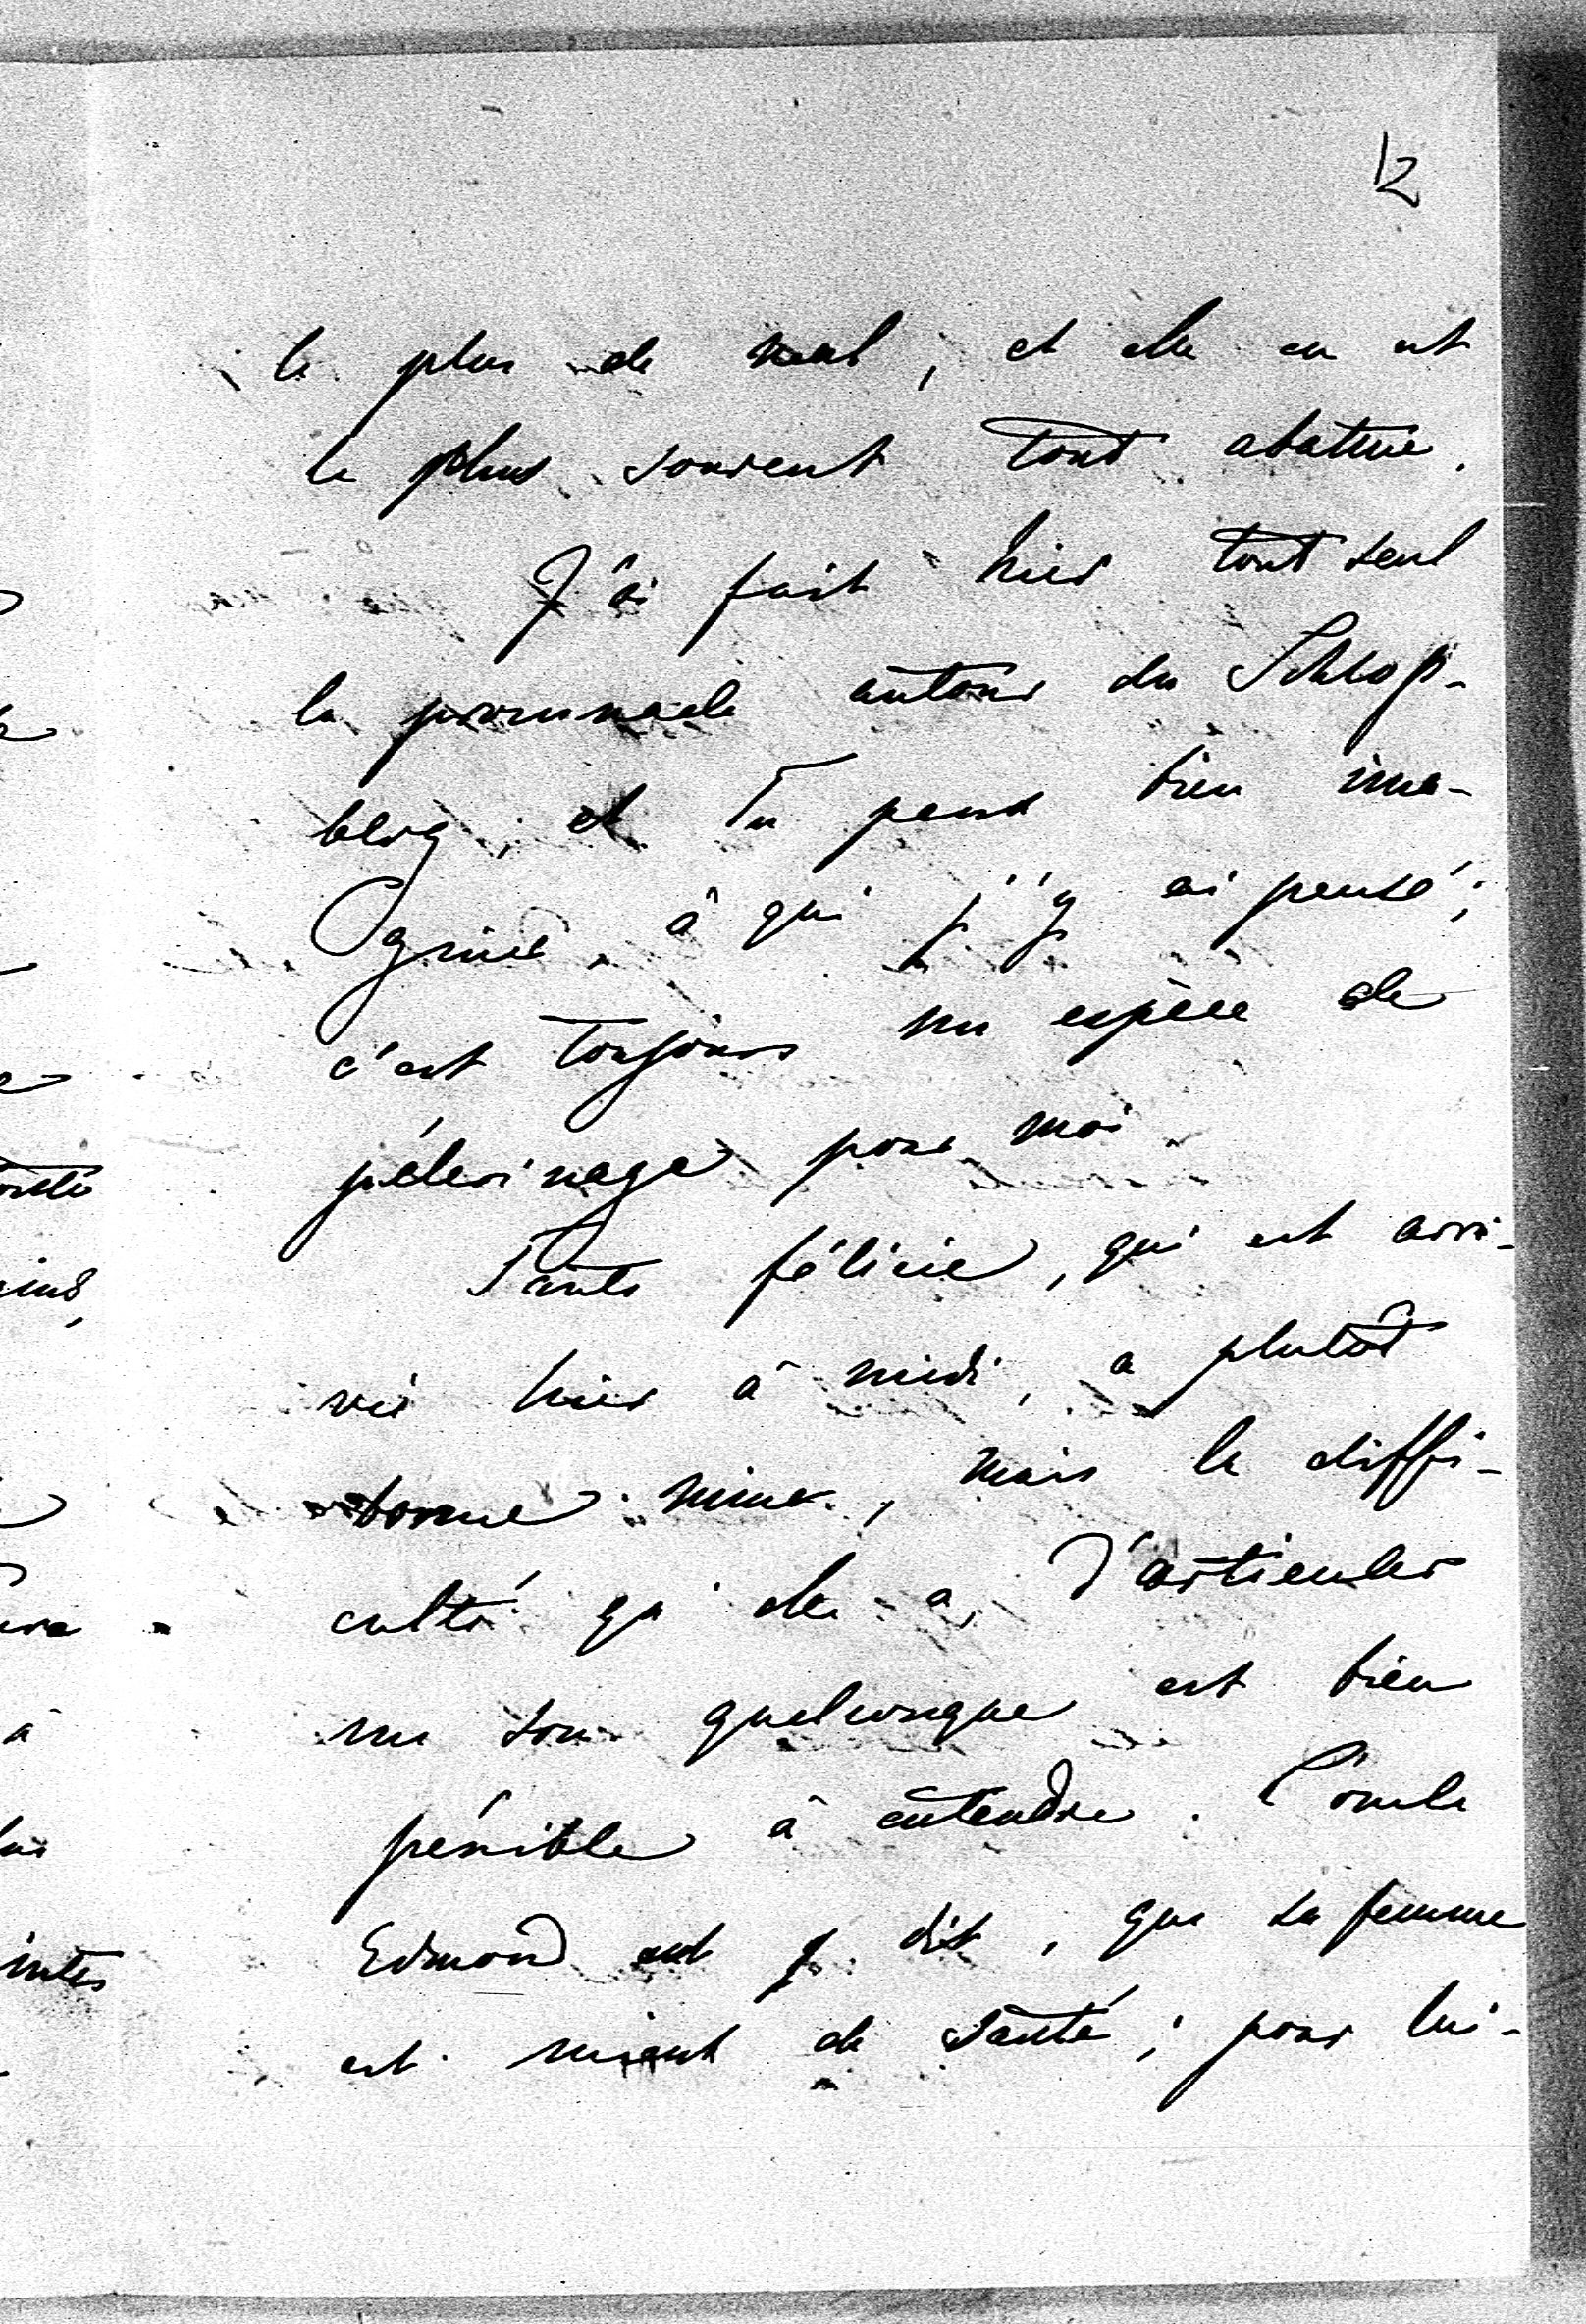 12
le plus de mal, et elle en est
le plus souvent tout abattue.
J'ai fait hier tout seul
la promenade autour du Schloß-
berg, et Tu peux bien ima-
giner, à qui j'y ai pensé;
c'est toujours un espèce de
pélerinage pour moi.
Tante Félicie, qui est arri-
vée hier à midi, a plutôt
bonne mine, mais la diffi-
culté qu'elle a, d'articuler
un son quelconque est bien
pénible à entendre. L'oncle
Edmond dit, que sa femme
est mieux de santé; pour lui-